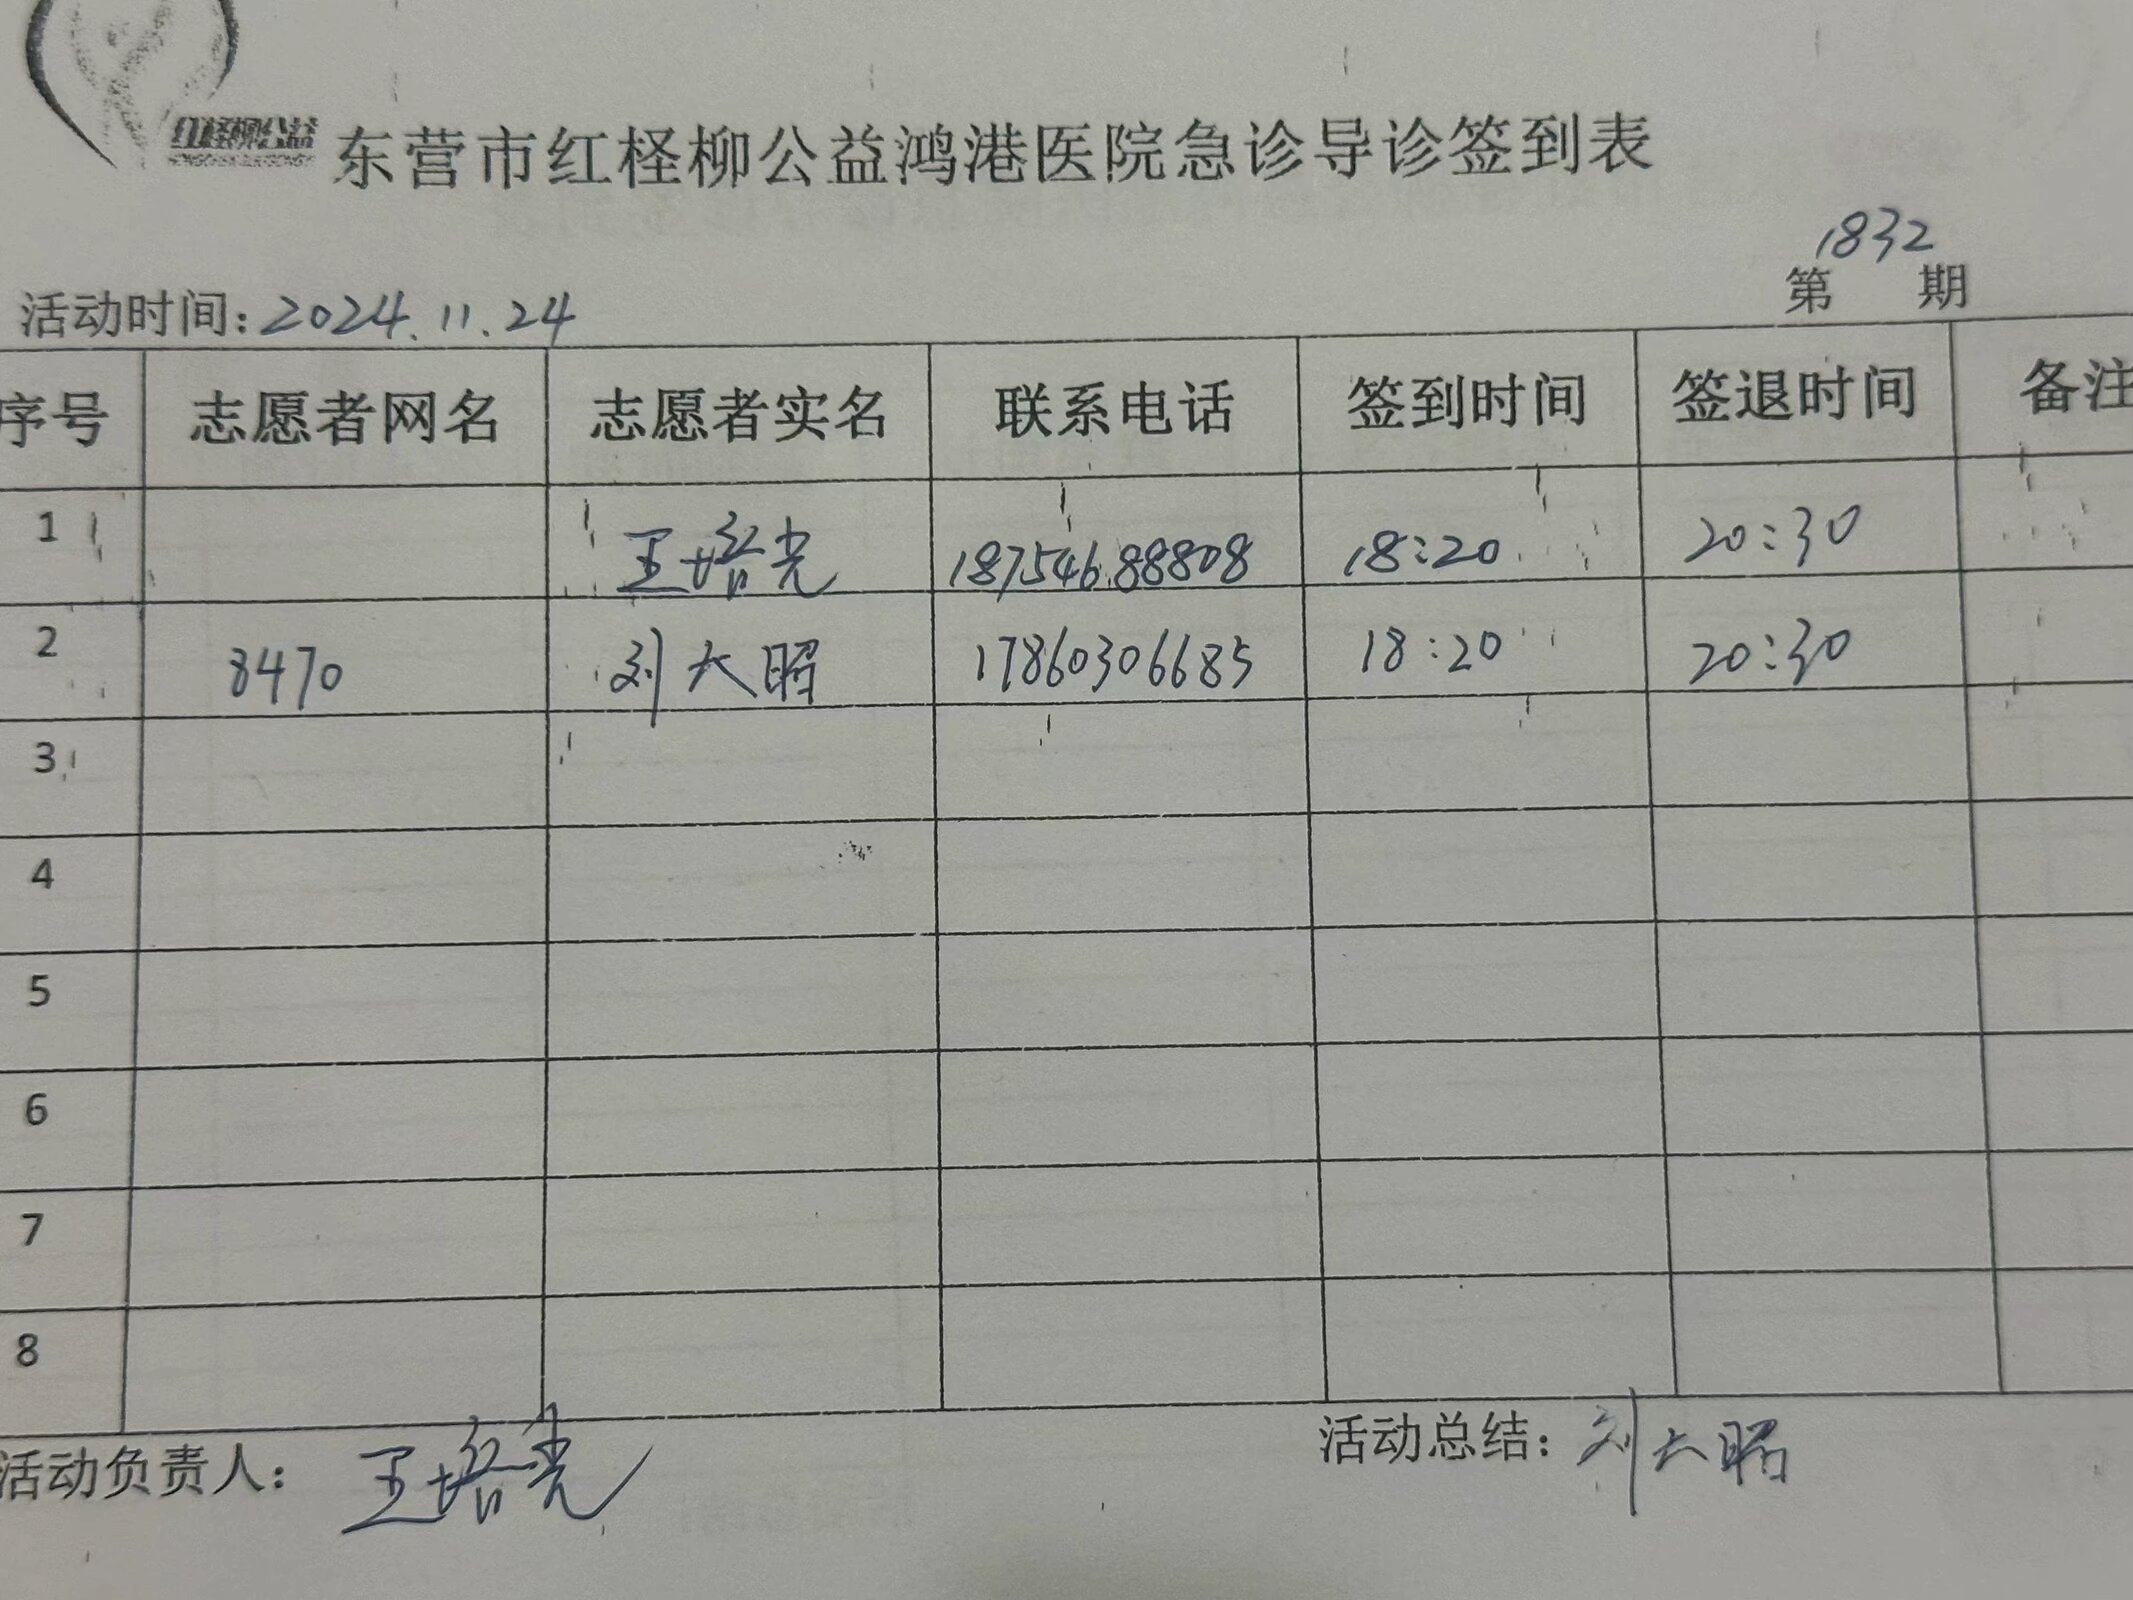 红柽柳公益
东营市红柽柳公益鸿港医院急诊导诊签到表
1832
第 期
活动时间: 2024.11.24
序号 志愿者网名 志愿者实名 联系电话 签到时间 签退时间 备注
1 王培光 18754688808 18:20 20:30
2 8470 刘大昭 17860306685 18:20 20:30
3
4
5
6
7
8
活动负责人: 王培光 活动总结: 刘大昭